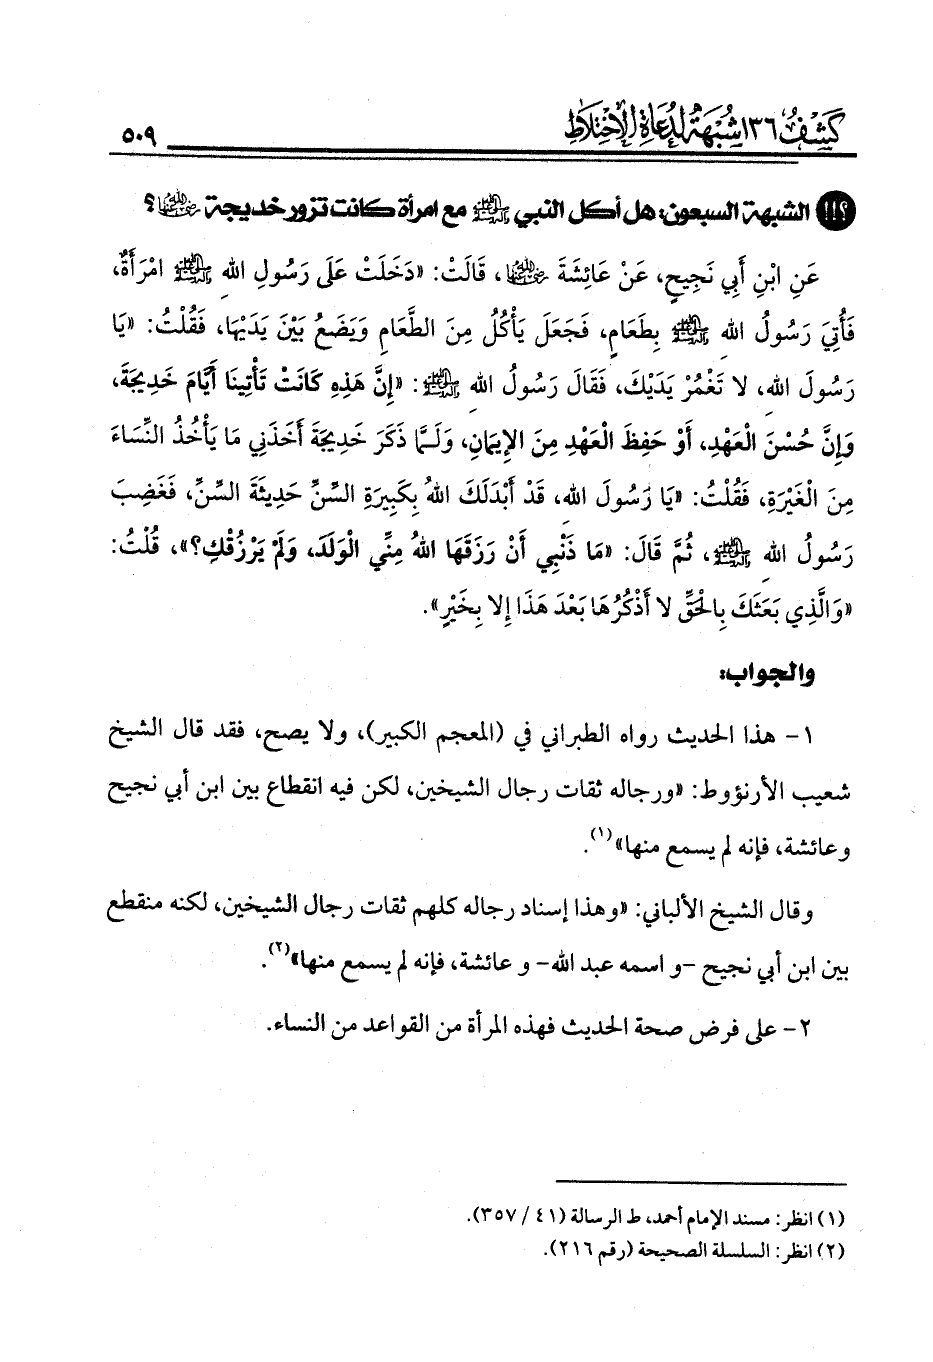 كشف ١٣٦ شبهة لدعاة الاختلاط
٥٠٩
الشبهة السبعون: هل أكل النبي ﷺ مع امرأة كانت تزور خديجة رضي الله عنها؟
عَنِ ابْنِ أَبِي نَجِيحٍ، عَنْ عَائِشَةَ رضي الله عنها، قَالَتْ: «دَخَلَتْ عَلَى رَسُولِ اللهِ ﷺ امْرَأَةٌ،
فَأُتِيَ رَسُولُ اللهِ ﷺ بِطَعَامٍ، فَجَعَلَ يَأْكُلُ مِنَ الطَّعَامِ وَيَضَعُ بَيْنَ يَدَيْهَا، فَقُلْتُ: «يَا
رَسُولَ اللهِ، لا تَغْمُرْ يَدَيْكَ، فَقَالَ رَسُولُ اللهِ ﷺ: «إِنَّ هَذِهِ كَانَتْ تَأْتِينَا أَيَّامَ خَدِيجَةَ،
وَإِنَّ حُسْنَ الْعَهْدِ، أَوْ حَفِظَ الْعَهْدِ مِنَ الإِيمَانِ، وَلَمَّا ذَكَرَ خَدِيجَةَ أَخَذَنِي مَا يَأْخُذُ النِّسَاءَ
مِنَ الْغَيْرَةِ، فَقُلْتُ: «يَا رَسُولَ اللهِ، قَدْ أَبْدَلَكَ اللهُ بِكَبِيرَةِ السِّنِّ حَدِيثَةَ السِّنِّ، فَغَضِبَ
رَسُولُ اللهِ ﷺ، ثُمَّ قَالَ: «مَا ذَنْبِي أَنْ رَزَقَهَا اللهُ مِنِّي الْوَلَدَ، وَلَمْ يَرْزُقْكِ؟»، قُلْتُ:
«وَالَّذِي بَعَثَكَ بِالْحَقِّ لا أَذْكُرُهَا بَعْدَ هَذَا إِلا بِخَيْرٍ».
والجواب:
١- هذا الحديث رواه الطبراني في (المعجم الكبير)، ولا يصح، فقد قال الشيخ
شعيب الأرنؤوط: «ورجاله ثقات رجال الشيخين، لكن فيه انقطاع بين ابن أبي نجيح
وعائشة، فإنه لم يسمع منها»(١).
وقال الشيخ الألباني: «وهذا إسناد رجاله كلهم ثقات رجال الشيخين، لكنه منقطع
بين ابن أبي نجيح -و اسمه عبد الله- و عائشة، فإنه لم يسمع منها»(٢).
٢- على فرض صحة الحديث فهذه المرأة من القواعد من النساء.
(١) انظر: مسند الإمام أحمد، ط الرسالة (٤١ / ٣٥٧).
(٢) انظر: السلسلة الصحيحة (رقم ٢١٦).